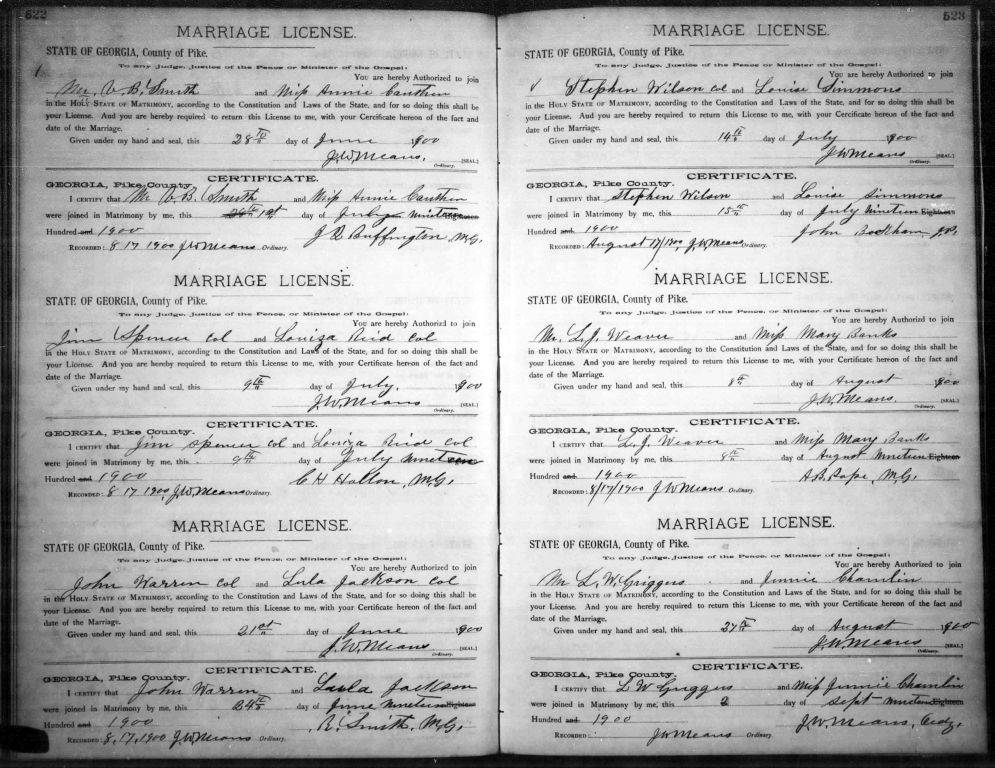 522
MARRIAGE LICENSE.
STATE OF GEORGIA, County of Pike.
To any Judge, Justice of the Peace or Minister of the Gospel:
You are hereby Authorized to join
Mr. V. B. Smith and Miss Annie Cauthen
in the HOLY STATE OF MATRIMONY, according to the Constitution and Laws of the State, and for so doing this shall be
your License. And you are hereby required to return this License to me, with your Certificate hereon of the fact and
date of the Marriage.
Given under my hand and seal, this 28th day of June 1900
J.W. Means, [SEAL.]
Ordinary.
CERTIFICATE.
GEORGIA, Pike County.
I CERTIFY that Mr V. B. Smith and Miss Annie Cauthen
were joined in Matrimony by me, this 1st day of July nineteen
Hundred and 1900
J R Buffington M.G.
RECORDED: 8 17 1900 J.W. Means Ordinary.
MARRIAGE LICENSE.
STATE OF GEORGIA, County of Pike.
To any Judge, Justice of the Peace, or Minister of the Gospel:
You are hereby Authorized to join
Jim Spencer col and Louiza Reid col
in the HOLY STATE OF MATRIMONY, according to the Constitution and Laws of the State, and for so doing this shall be
your License. And you are hereby required to return this License to me, with your Certificate hereon of the fact and
date of the Marriage.
Given under my hand and seal, this 9th day of July. 1900
J.W. Means [SEAL.]
Ordinary.
CERTIFICATE.
GEORGIA, Pike County.
I CERTIFY that Jim Spencer col and Louiza Reid col
were joined in Matrimony by me, this 9th day of July nineteen
Hundred and 1900
C H Holton, M.G.
RECORDED: 8 17 1900, J.W. Means Ordinary.
MARRIAGE LICENSE.
STATE OF GEORGIA, County of Pike.
To any Judge, Justice of the Peace, or Minister of the Gospel:
You are hereby Authorized to join
John Warren col and Lula Jackson col
in the HOLY STATE OF MATRIMONY, according to the Constitution and Laws of the State, and for so doing this shall be
your License. And you are hereby required to return this License to me, with your Certificate hereon of the fact and
date of the Marriage.
Given under my hand and seal, this 21st day of June 1900
J.W. Means [SEAL.]
Ordinary.
CERTIFICATE.
GEORGIA, Pike County.
I CERTIFY that John Warren and Lula Jackson
were joined in Matrimony by me, this 24th day of June nineteen Eighteen
Hundred and 1900
R. Smith, M.G.
RECORDED: 8, 17, 1900 J.W. Means Ordinary.
523
MARRIAGE LICENSE.
STATE OF GEORGIA, County of Pike.
To any Judge, Justice of the Peace, or Minister of the Gospel:
You are hereby Authorized to join
Stephen Wilson col and Louise Simmons
in the HOLY STATE OF MATRIMONY, according to the Constitution and Laws of the State, and for so doing this shall be
your License. And you are hereby required to return this License to me, with your Certificate hereon of the fact and
date of the Marriage.
Given under my hand and seal, this 14th day of July 1900
J W Means [SEAL.]
Ordinary.
CERTIFICATE.
GEORGIA, Pike County.
I CERTIFY that Stephen Wilson and Louise Simmons
were joined in Matrimony by me, this 15th day of July nineteen Eighteen
Hundred and 1900
John J.P.
RECORDED: August 17/1900, J.W. Means Ordinary.
MARRIAGE LICENSE.
STATE OF GEORGIA, County of Pike.
To any Judge, Justice of the Peace, or Minister of the Gospel:
You are hereby Authorized to join
Mr. L. J. Weaver and Miss Mary Banks
in the HOLY STATE OF MATRIMONY, according to the Constitution and Laws of the State, and for so doing this shall be
your License. And you are hereby required to return this License to me, with your Certificate hereon of the fact and
date of the Marriage.
Given under my hand and seal, this 8th day of August 1900
J.W. Means. [SEAL.]
Ordinary.
CERTIFICATE.
GEORGIA, Pike County.
I CERTIFY that L. J. Weaver and Miss Mary Banks
were joined in Matrimony by me, this 8th day of August nineteen Eighteen
Hundred and 1900
A.B. Pope, M.G.
RECORDED: 8/17/1900 J W Means Ordinary.
MARRIAGE LICENSE.
STATE OF GEORGIA, County of Pike.
To any Judge, Justice of the Peace, or Minister of the Gospel:
You are hereby Authorized to join
Mr L. W. Griggers and Jennie Chamlin
in the HOLY STATE OF MATRIMONY, according to the Constitution and Laws of the State, and for so doing this shall be
your License. And you are hereby required to return this License to me, with your Certificate hereon of the fact and
date of the Marriage.
Given under my hand and seal, this 27th day of August 1900
J.W. Means [SEAL.]
Ordinary.
CERTIFICATE.
GEORGIA, Pike County.
I CERTIFY that L W Griggers and Miss Jennie Chamlin
were joined in Matrimony by me, this 2 day of Sept nineteen Eighteen
Hundred and 1900
J.W. Means, Ordy.
RECORDED: J W Means Ordinary.